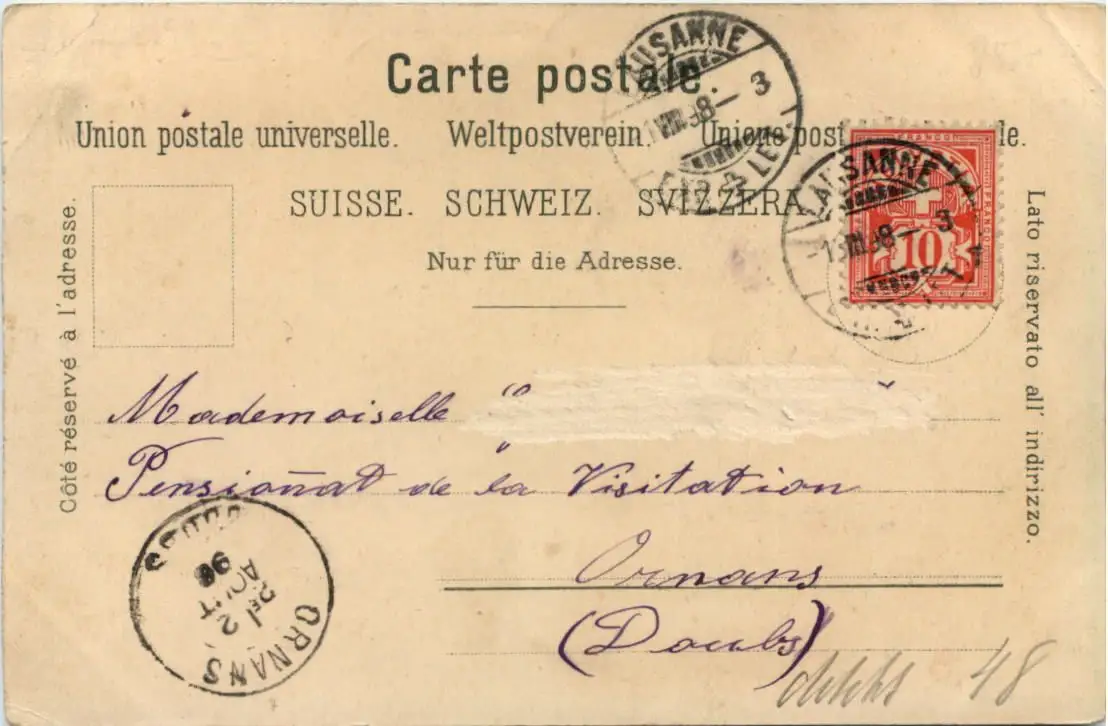 Carte postale.
Union postale universelle. Weltpostverein. Unione post le.
SUISSE. SCHWEIZ. SVIZZERA
Nur für die Adresse.
Côté réservé à l'adresse.
Lato riservato all' indirizzo.
LAUSANNE
VIII 98 – 3
LET.
LAUSANNE
VIII 98 – 3
LET
FRANCO
10
Mademoiselle " "
Pensionnat de la Visitation
Ornans
(Doubs)
ORNANS
2
AOUT
98
DOUBS
48